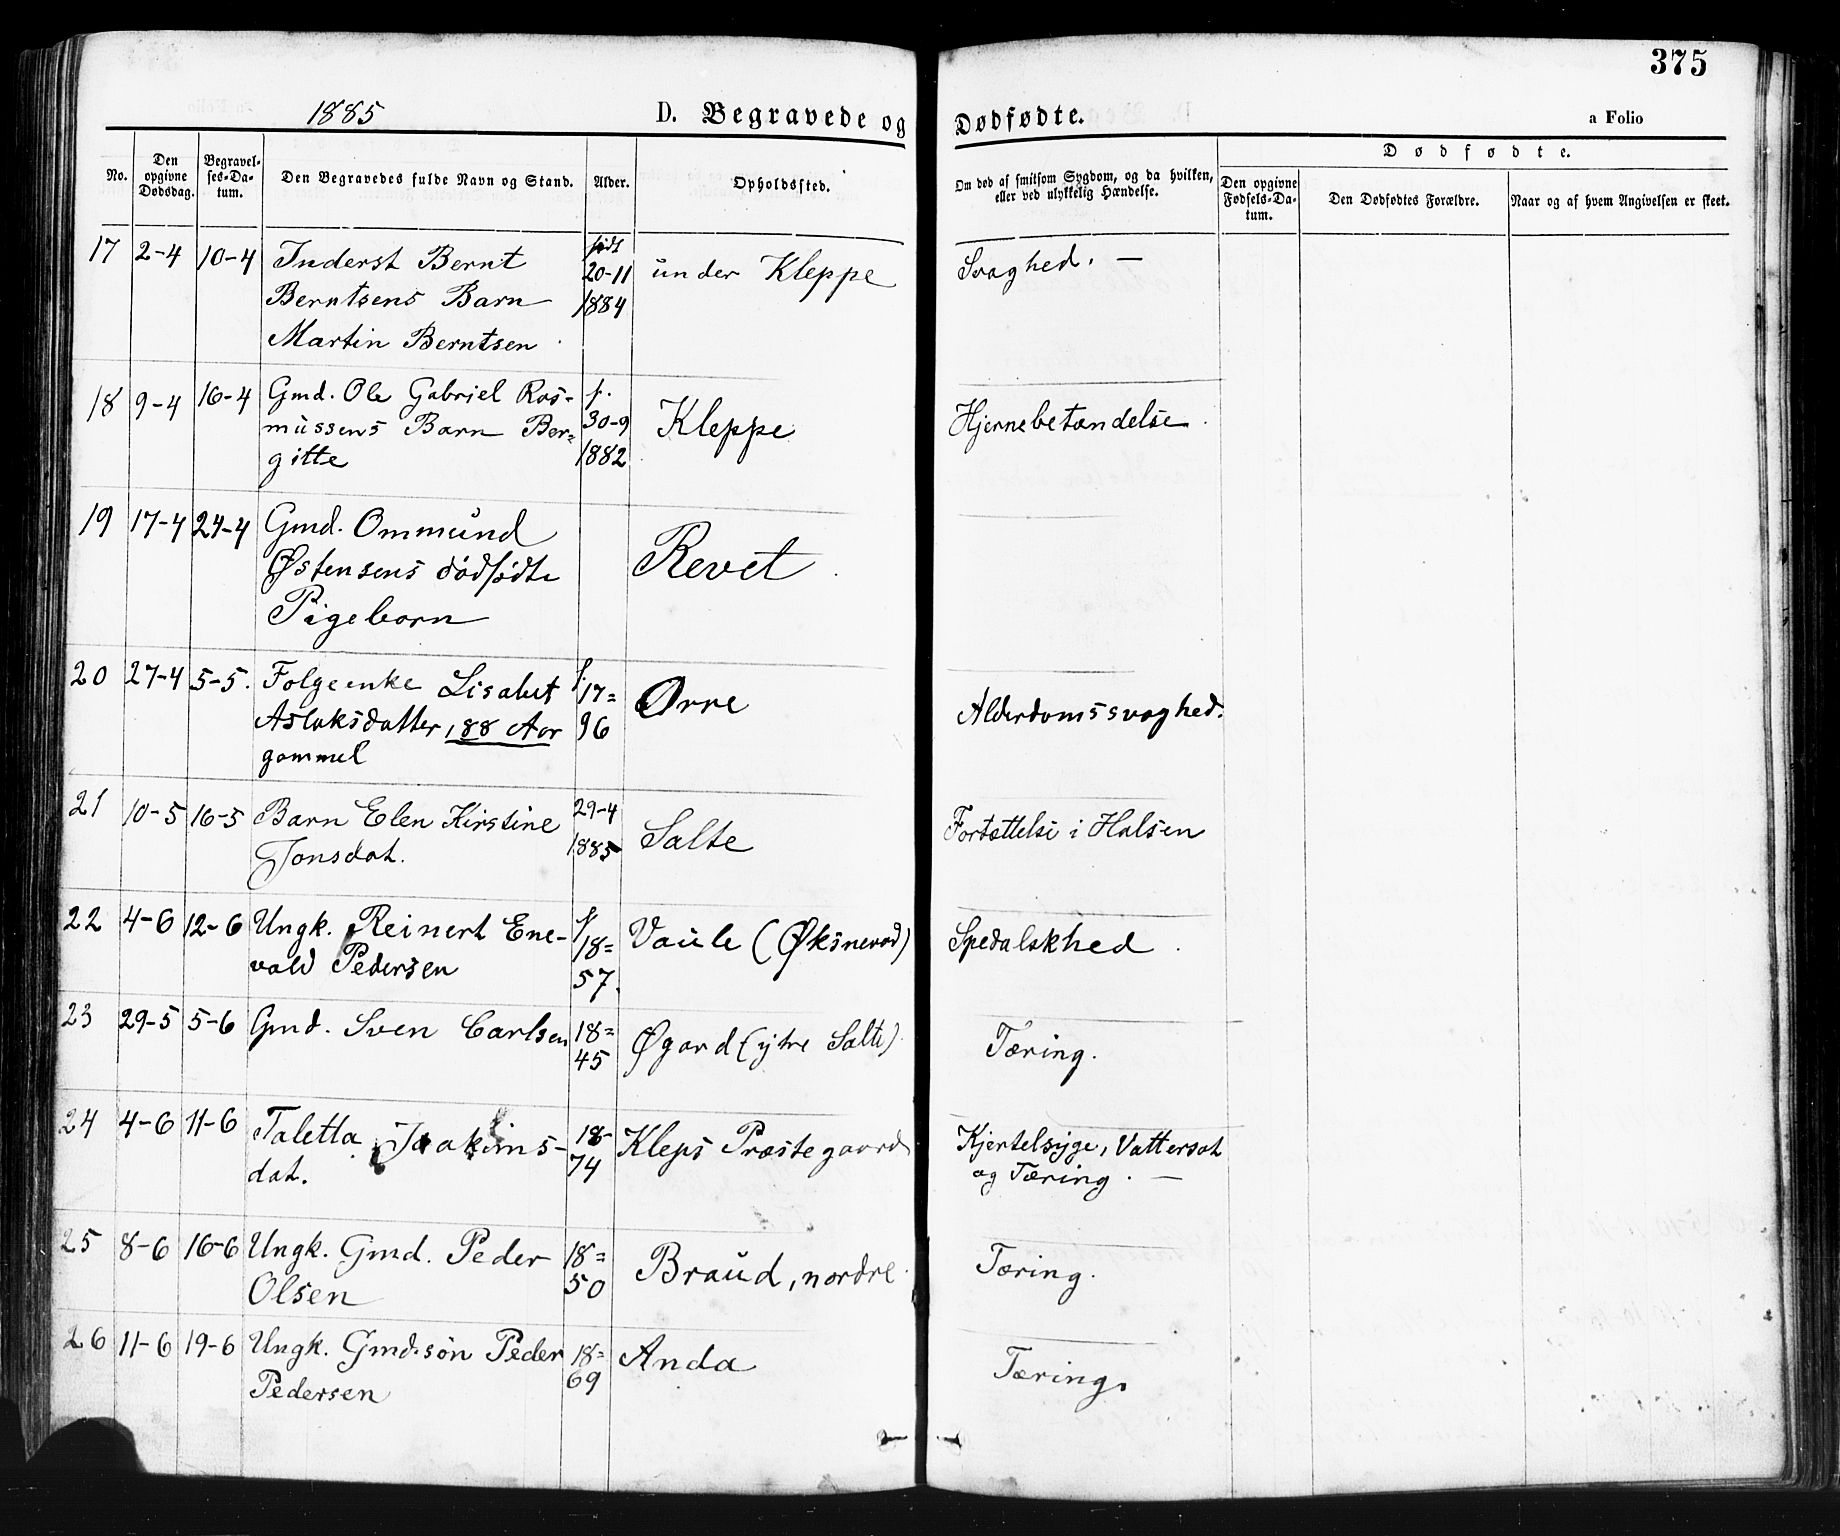 375
1885
D. Begravede og Dødfødte.
a Folio
No.
Den opgivne Dødsdag.
Begravelses-Datum.
Den Begravedes fulde Navn og Stand.
Alder.
Opholdssted.
Om død af smitsom Sygdom, og da hvilken,
eller ved ulykkelig Hændelse.
Dødfødte.
Den opgivne Fødsels-Datum.
Den Dødfødtes Forældre.
Naar og af hvem Angivelsen er skeet.
17 2-4 10-4 Inderst Bernt født under Kleppe Svaghed. —
Berntsens Barn 20-11
Martin Berntsen 1884
18 9-4 16-4 Gmd. Ole Gabriel Ras- f. Kleppe Hjernebetændelse.
mussens Barn Ber- 30-9
gitte 1882
19 17-4 24-4 Gmd. Ommund Revet
Østensens dødfødte
Pigebarn
20 27-4 5-5. Folgeenke Lisabet f. 17= Ørre Alderdomssvaghed.
Aslaksdatter, 88 Aar 96
gammel
21 10-5 16-5 Barn Elen Kirstine 29-4 Salte Fortættelse i Halsen
Jonsdat. 1885
22 4-6 12-6 Ungk. Reinert Ene- f. 18= Vaule (Øksnevad) Spedalskhed.
vald Pedersen 57.
23 29-5 5-6 Gmd. Sven Carlsen 18= Øgard (ytre Salte) Tæring.
45
24 4-6 11-6 Taletta Joakims- 18- Kleps Præstegaard Kjertelsyge, Vattersot
dat. 74 og Tæring. —
25 8-6 16-6 Ungk. Gmd. Peder 18= Braud, nordre. Tæring.
Olsen 50
26 11-6 19-6 Ungk. Gmd.søn Peder 18= Anda Tæring.
Pedersen 69